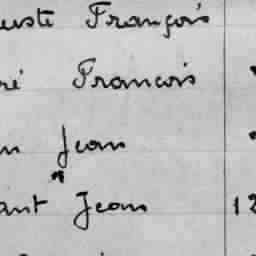 uste François
ré Francois
n Jean
ant Jean 12